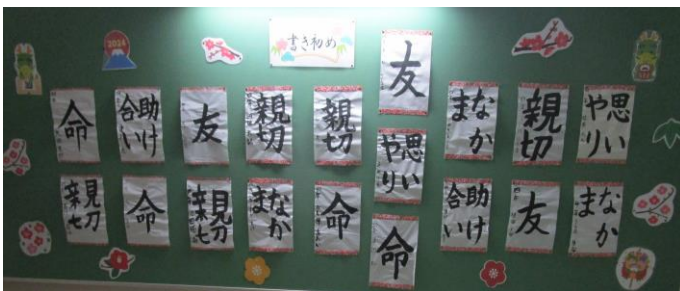 2024
書き初め
命
助け
合い
友
親切
親切
友
なか
ま
親切
思い
やり
思い
やり
親切
命
親切
なか
ま
命
命
助け
合い
友
なか
ま